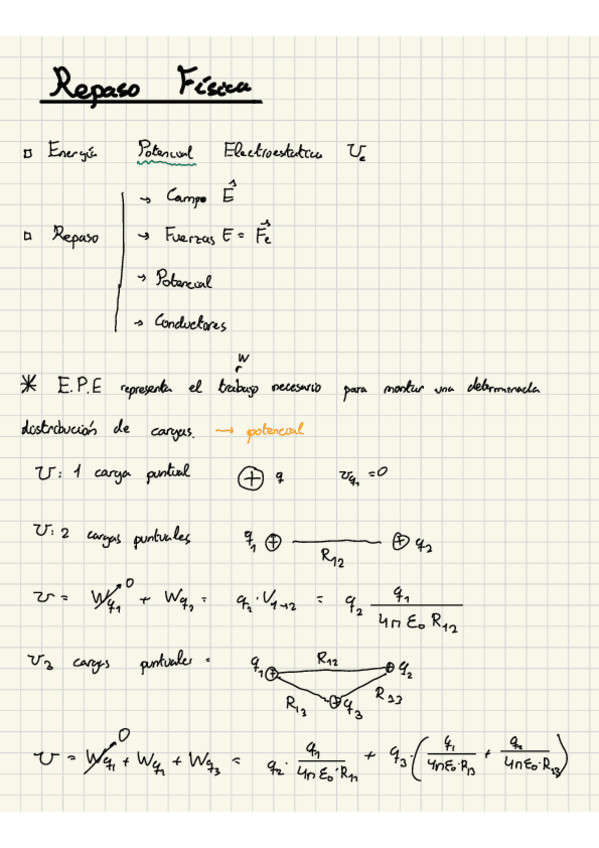 Repaso Física
▫ Energía Potencial Electroestatica Uₑ
→ Campo E⃗
▫ Repaso → Fuerzas E = F⃗ₑ
→ Potencial
→ Conductores
W
* E.P.E representa el trabajo necesario para montar una determinada
distribución de cargas. → potencial
U: 1 carga puntual ⊕ q U_q₁ = 0
U: 2 cargas puntuales q₁ ⊕ — R₁₂ — ⊕ q₂
U = W_q₁ (→ 0) + W_q₂ = q₂ · V₁→₂ = q₂ q₁ / (4π ε₀ R₁₂)
U 3 cargas puntuales = q₁ ⊕ R₁₂ ⊕ q₂
R₁₃ ⊕ q₃ R₂₃
U = W_q₁ (→ 0) + W_q₂ + W_q₃ = q₂ · q₁ / (4π ε₀ · R₁₂) + q₃ · ( q₁ / (4π ε₀ · R₁₃) + q₂ / (4π ε₀ · R₁₃) )